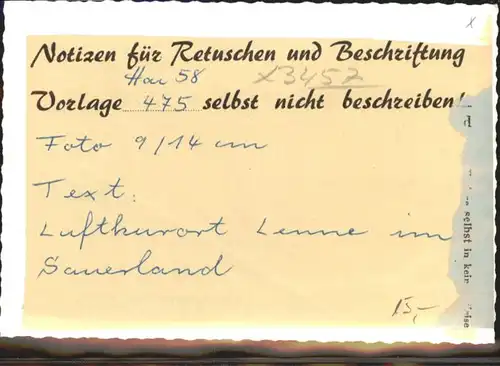 x
Notizen für Retuschen und Beschriftung
Har 58 x3457
Vorlage 475 selbst nicht beschreiben!
Foto 9/14 cm
Text:
Luftkurort Lenne im
Sauerland
15,-
selbst in kein